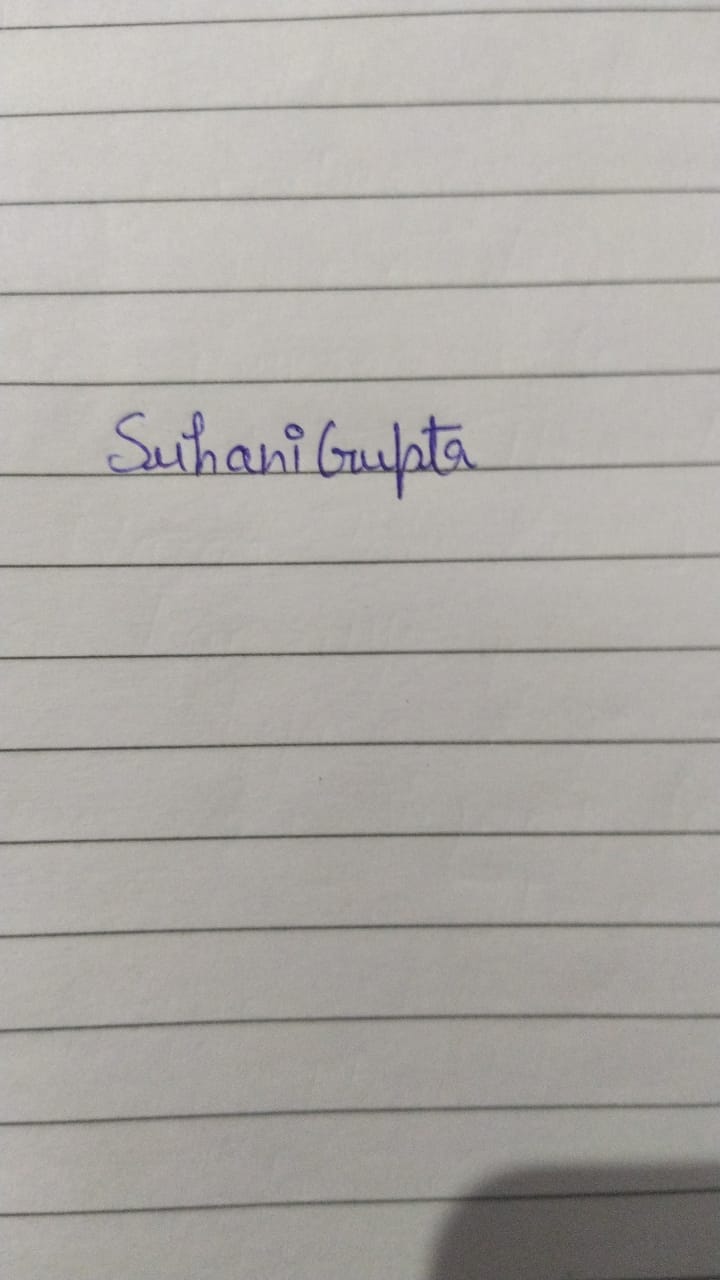 Suhani Gupta